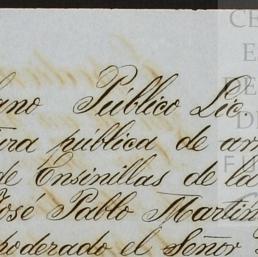 ano Público Lic.
ura pública de ar
de Ensinillas de la
José Pablo Martin
poderado el Señor